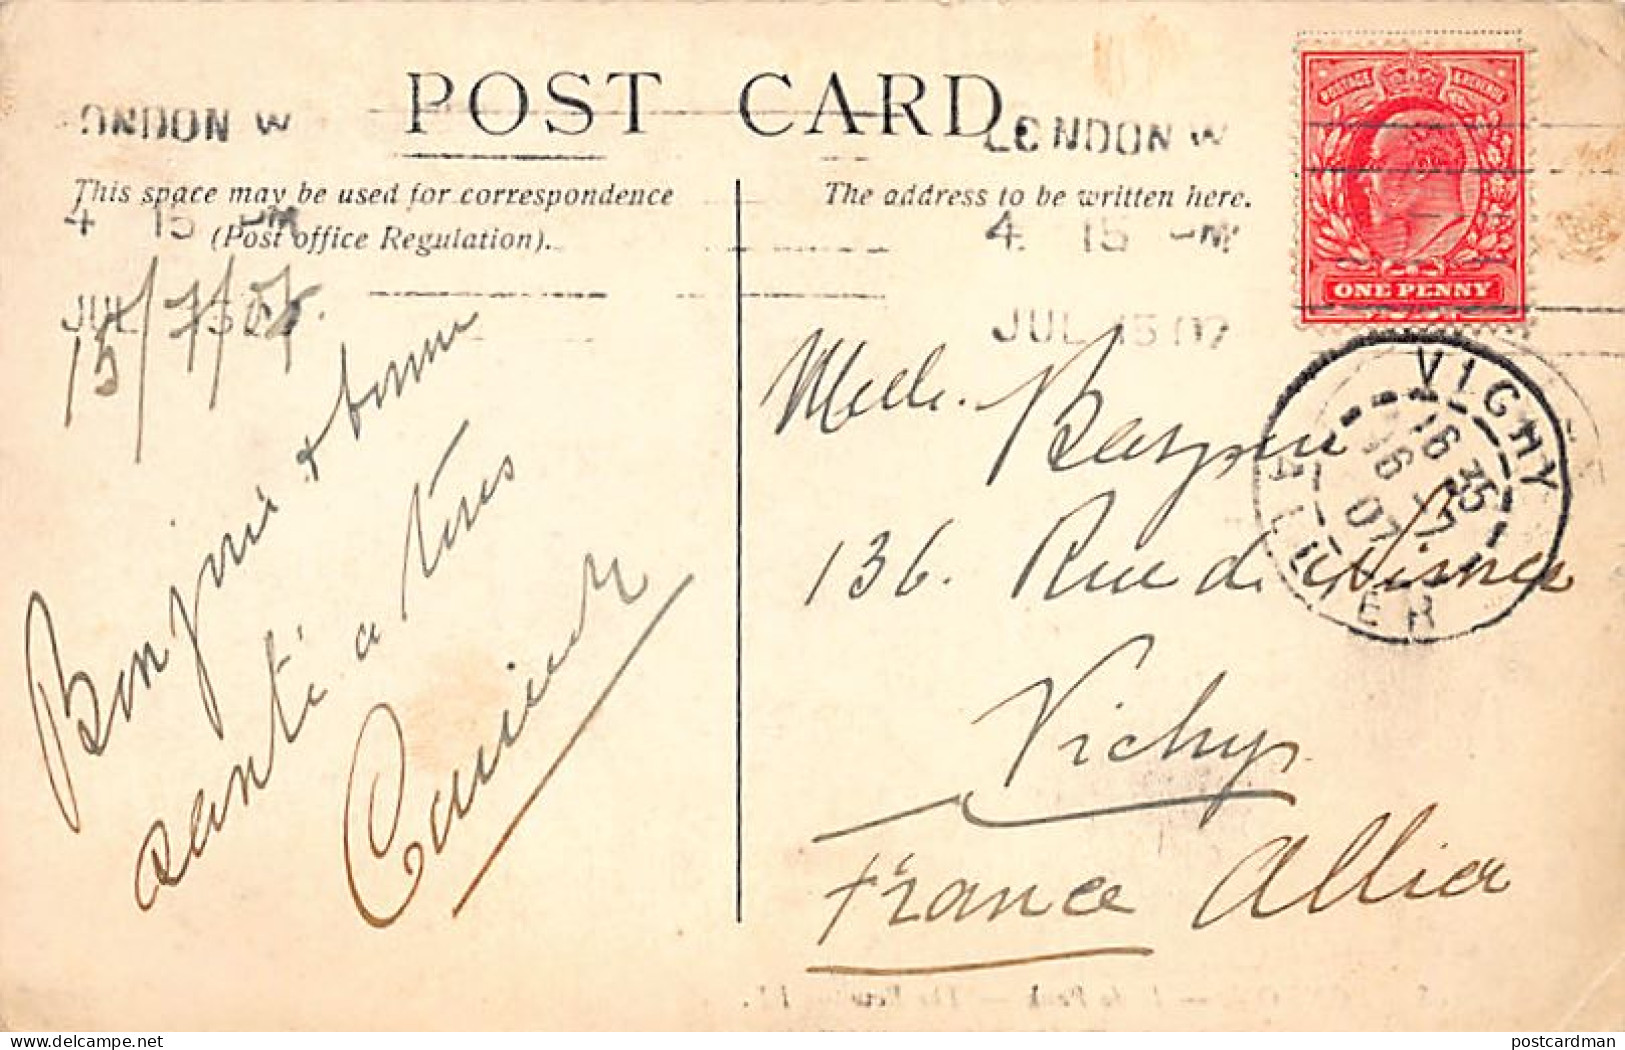 POST CARD
ONDON W
LONDON W
This space may be used for correspondence
(Post office Regulation).
The address to be written here.
4 15 PM
4 15 PM
JUL 15 07
JUL 15 07
POSTAGE & REVENUE
ONE PENNY
VICHY
ALLIER
16 35
16 7
07
15/7/07.
Bonjour & bonne
santé a tous
Melle.
136. Rue de Nismes
Vichy
France Allier
postcardman